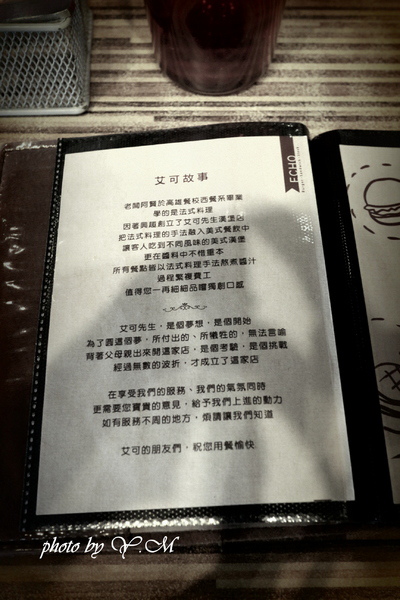 艾可故事
ECHO
老闆阿賢於高雄餐校西餐系畢業
學的是法式料理
因著興趣創立了艾可先生漢堡店
把法式料理的手法融入美式餐飲中
讓客人吃到不同風味的美式漢堡
更在醬料中不惜重本
所有餐點皆以法式料理手法熬煮醬汁
過程繁複費工
值得您一再細細品嚐獨創口感
艾可先生，是個夢想，是個開始
為了圓這個夢，所付出的、所犧牲的，無法言喻
背著父母親出來開這家店，是個考驗，是個挑戰
經過無數的波折，才成立了這家店
在享受我們的服務、我們的氣氛同時
更需要您寶貴的意見，給予我們上進的動力
如有服務不周的地方，煩請讓我們知道
艾可的朋友們，祝您用餐愉快
photo by Y.M